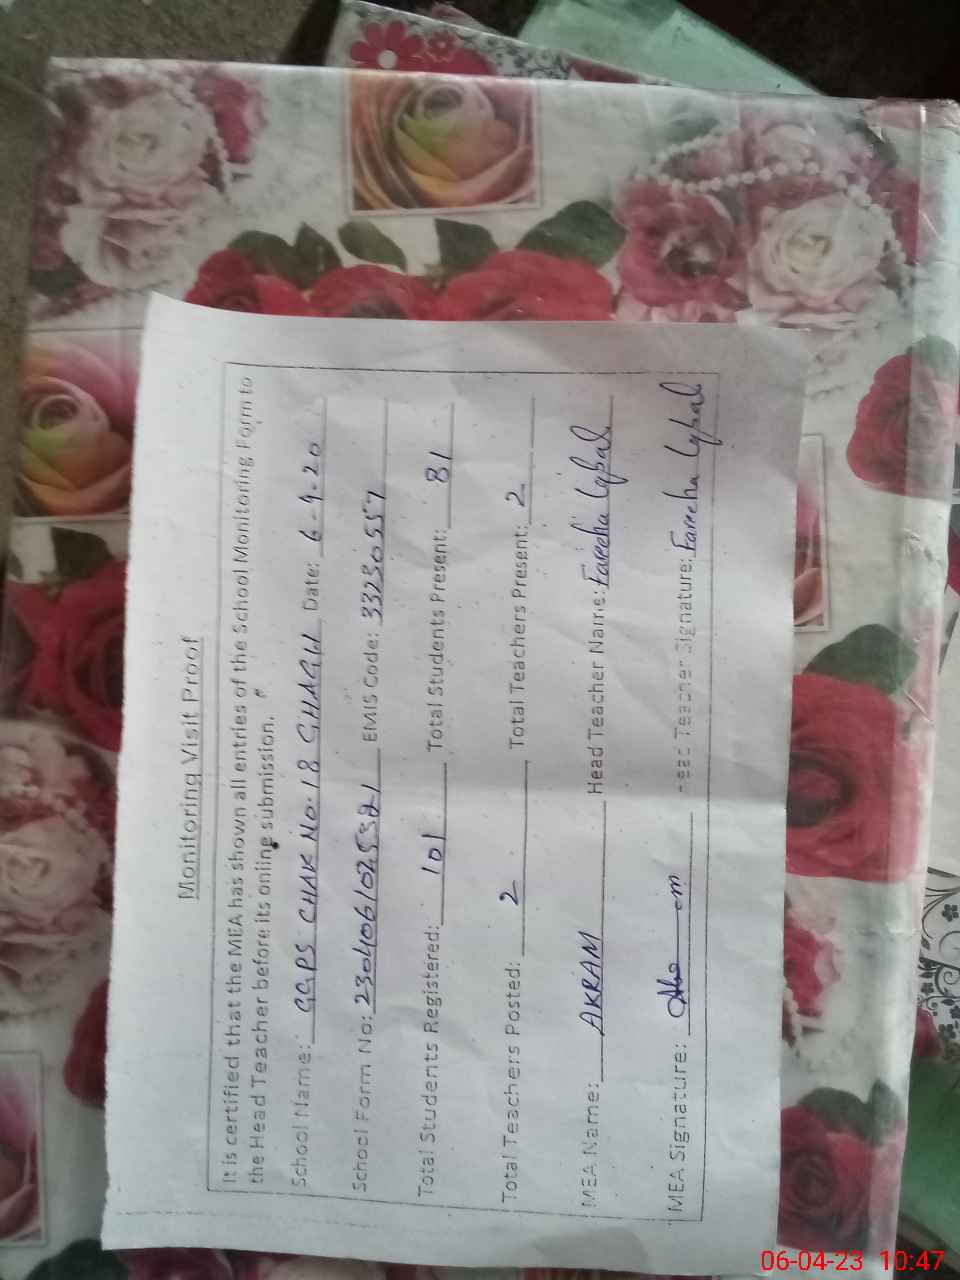 Monitoring Visit Proof
It is certified that the MEA has shown all entries of the School Monitoring Form to
the Head Teacher before its online submission.
School Name: GGPS CHAK NO. 18 GHAGH Date: 6-4-20
School Form No: EMIS Code: 33230557
Total Students Registered: 101 Total Students Present: 81
Total Teachers Posted: 2 Total Teachers Present: 2
MEA Name: AKRAM Head Teacher Name: Fareeha Iqbal
MEA Signature: Head Teacher Signature: Fareeha Iqbal
06-04-23 10:47